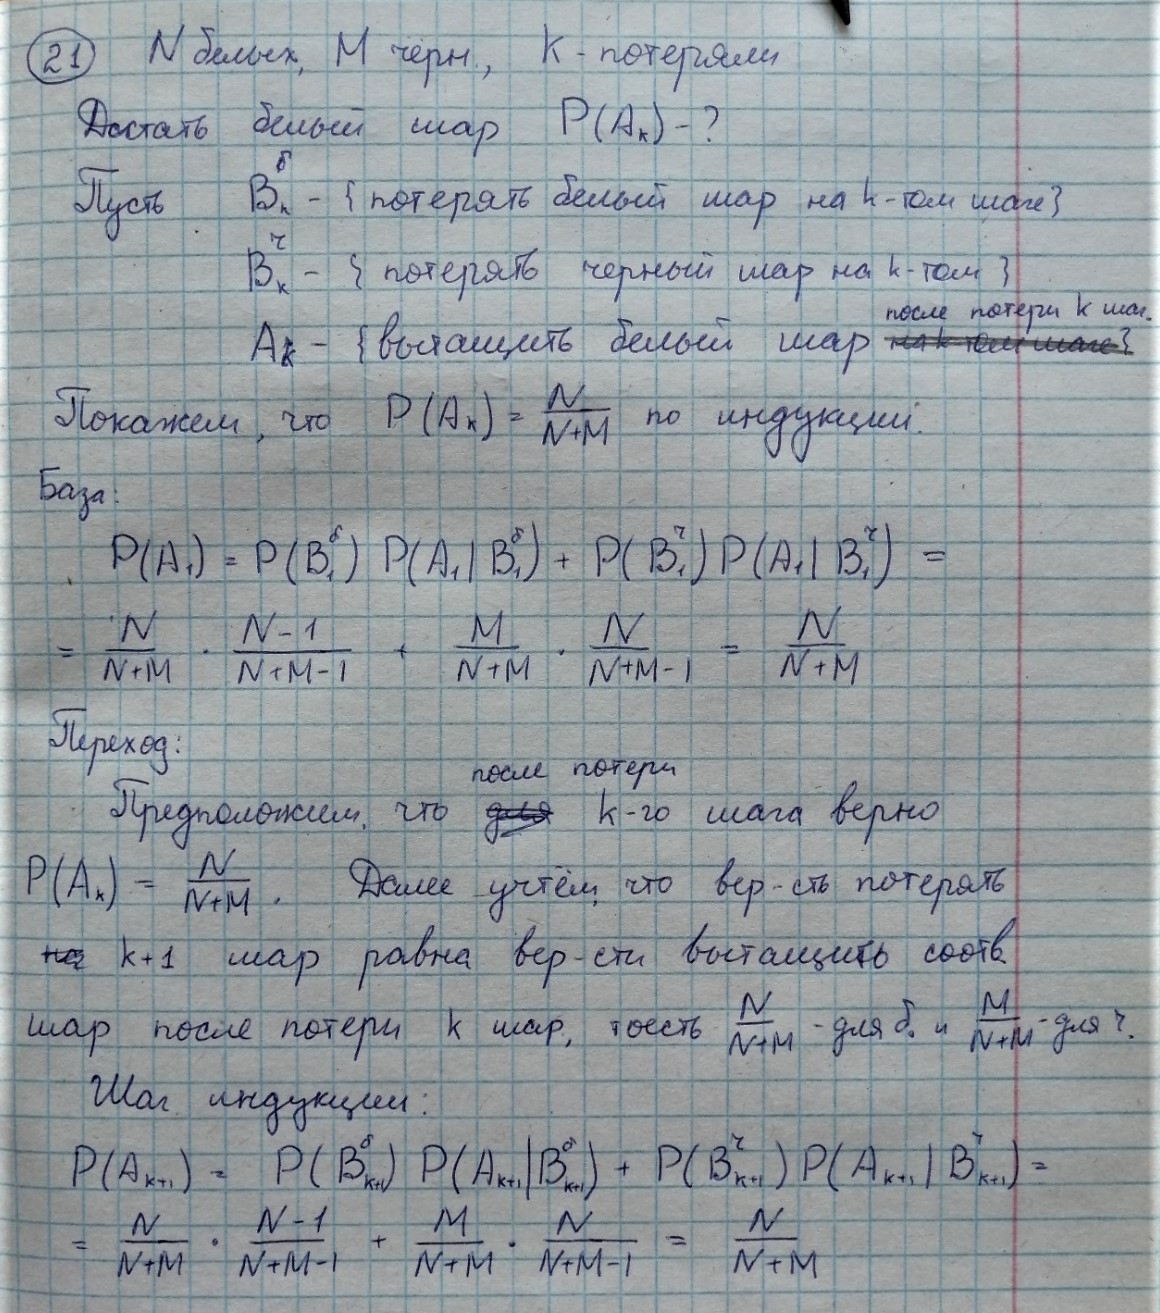 21 N белых, M черн., K - потеряли
Достать белый шар P(Aₖ) - ?
Пусть Bₖᵟ - { потерять белый шар на k-том шаге}
Bₖч - { потерять черный шар на k-том }
Aₖ - {вытащить белый шар после потери k шаг. на k-том шаге}
Покажем, что P(Aₖ) = N/(N+M) по индукции.
База:
P(A₁) = P(B₁ᵟ) P(A₁ | B₁ᵟ) + P(B₁ч) P(A₁ | B₁ч) =
= N/(N+M) · (N-1)/(N+M-1) + M/(N+M) · N/(N+M-1) = N/(N+M)
Переход:
Предположим, что для после потери k-го шага верно
P(Aₖ) = N/(N+M). Далее учтём, что вер-сть потерять
на k+1 шар равна вер-сти вытащить соотв.
шар после потери k шар, тоесть N/(N+M) - для б. и M/(N+M) - для ч.
Шаг индукции:
P(Aₖ₊₁) = P(Bₖ₊₁ᵟ) P(Aₖ₊₁ | Bₖ₊₁ᵟ) + P(Bₖ₊₁ч) P(Aₖ₊₁ | Bₖ₊₁ч) =
= N/(N+M) · (N-1)/(N+M-1) + M/(N+M) · N/(N+M-1) = N/(N+M)